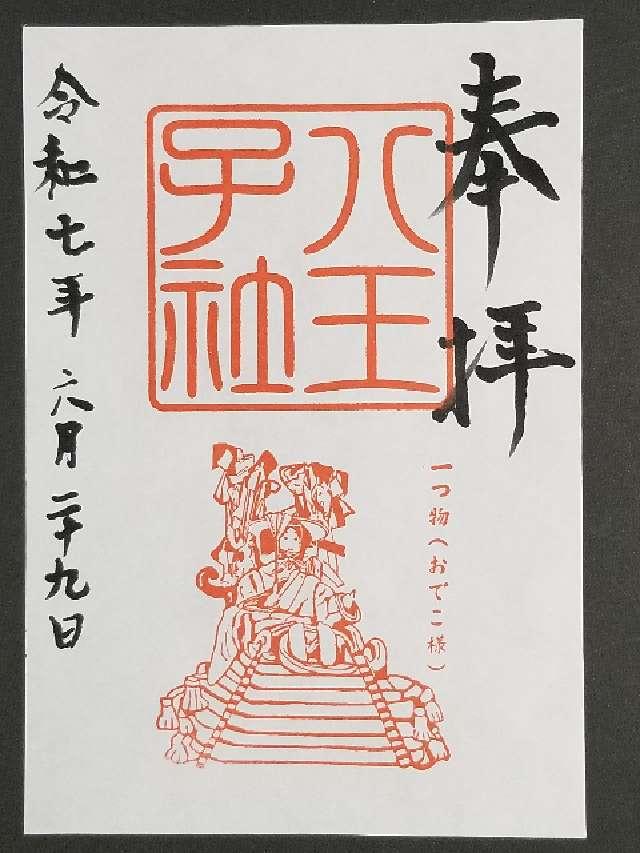 奉拝
八王子社
一つ物(おでこ様)
令和七年六月二十九日